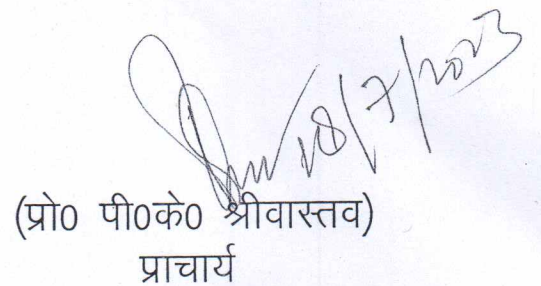 18/7/2023
(प्रो0 पी0के0 श्रीवास्तव)
प्राचार्य